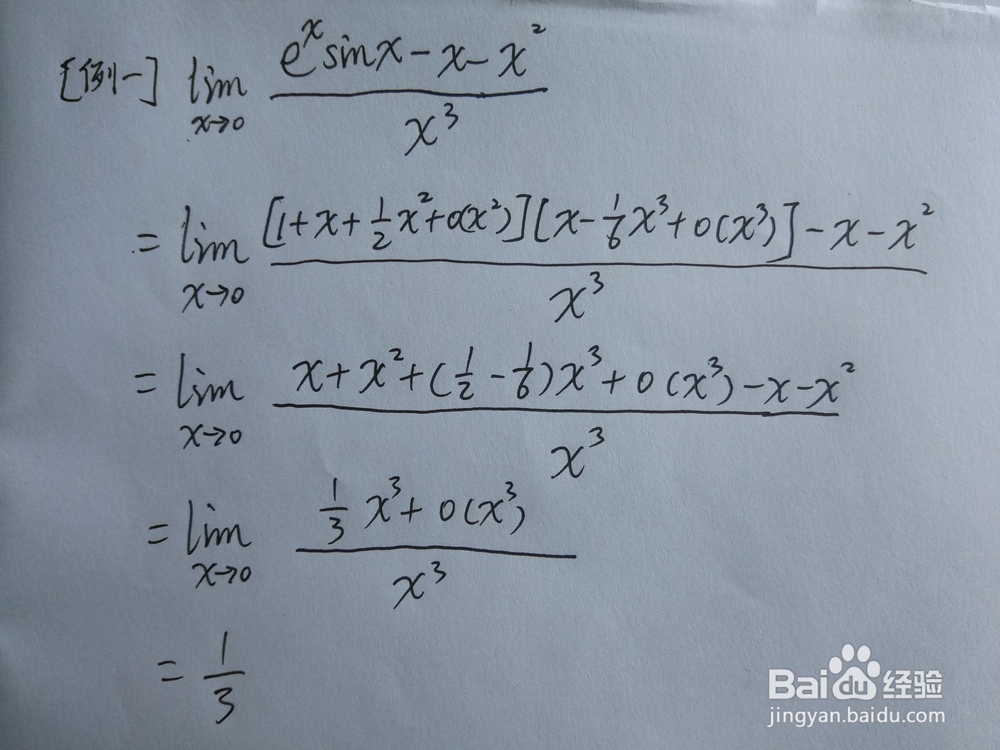 [例一] lim x→0 (e^x sinx - x - x²) / x³
= lim x→0 ([1+x+½x²+o(x²)][x-⅙x³+o(x³)]-x-x²) / x³
= lim x→0 (x+x²+(½-⅙)x³+o(x³)-x-x²) / x³
= lim x→0 (⅓x³+o(x³)) / x³
= 1/3
Baidu经验
jingyan.baidu.com